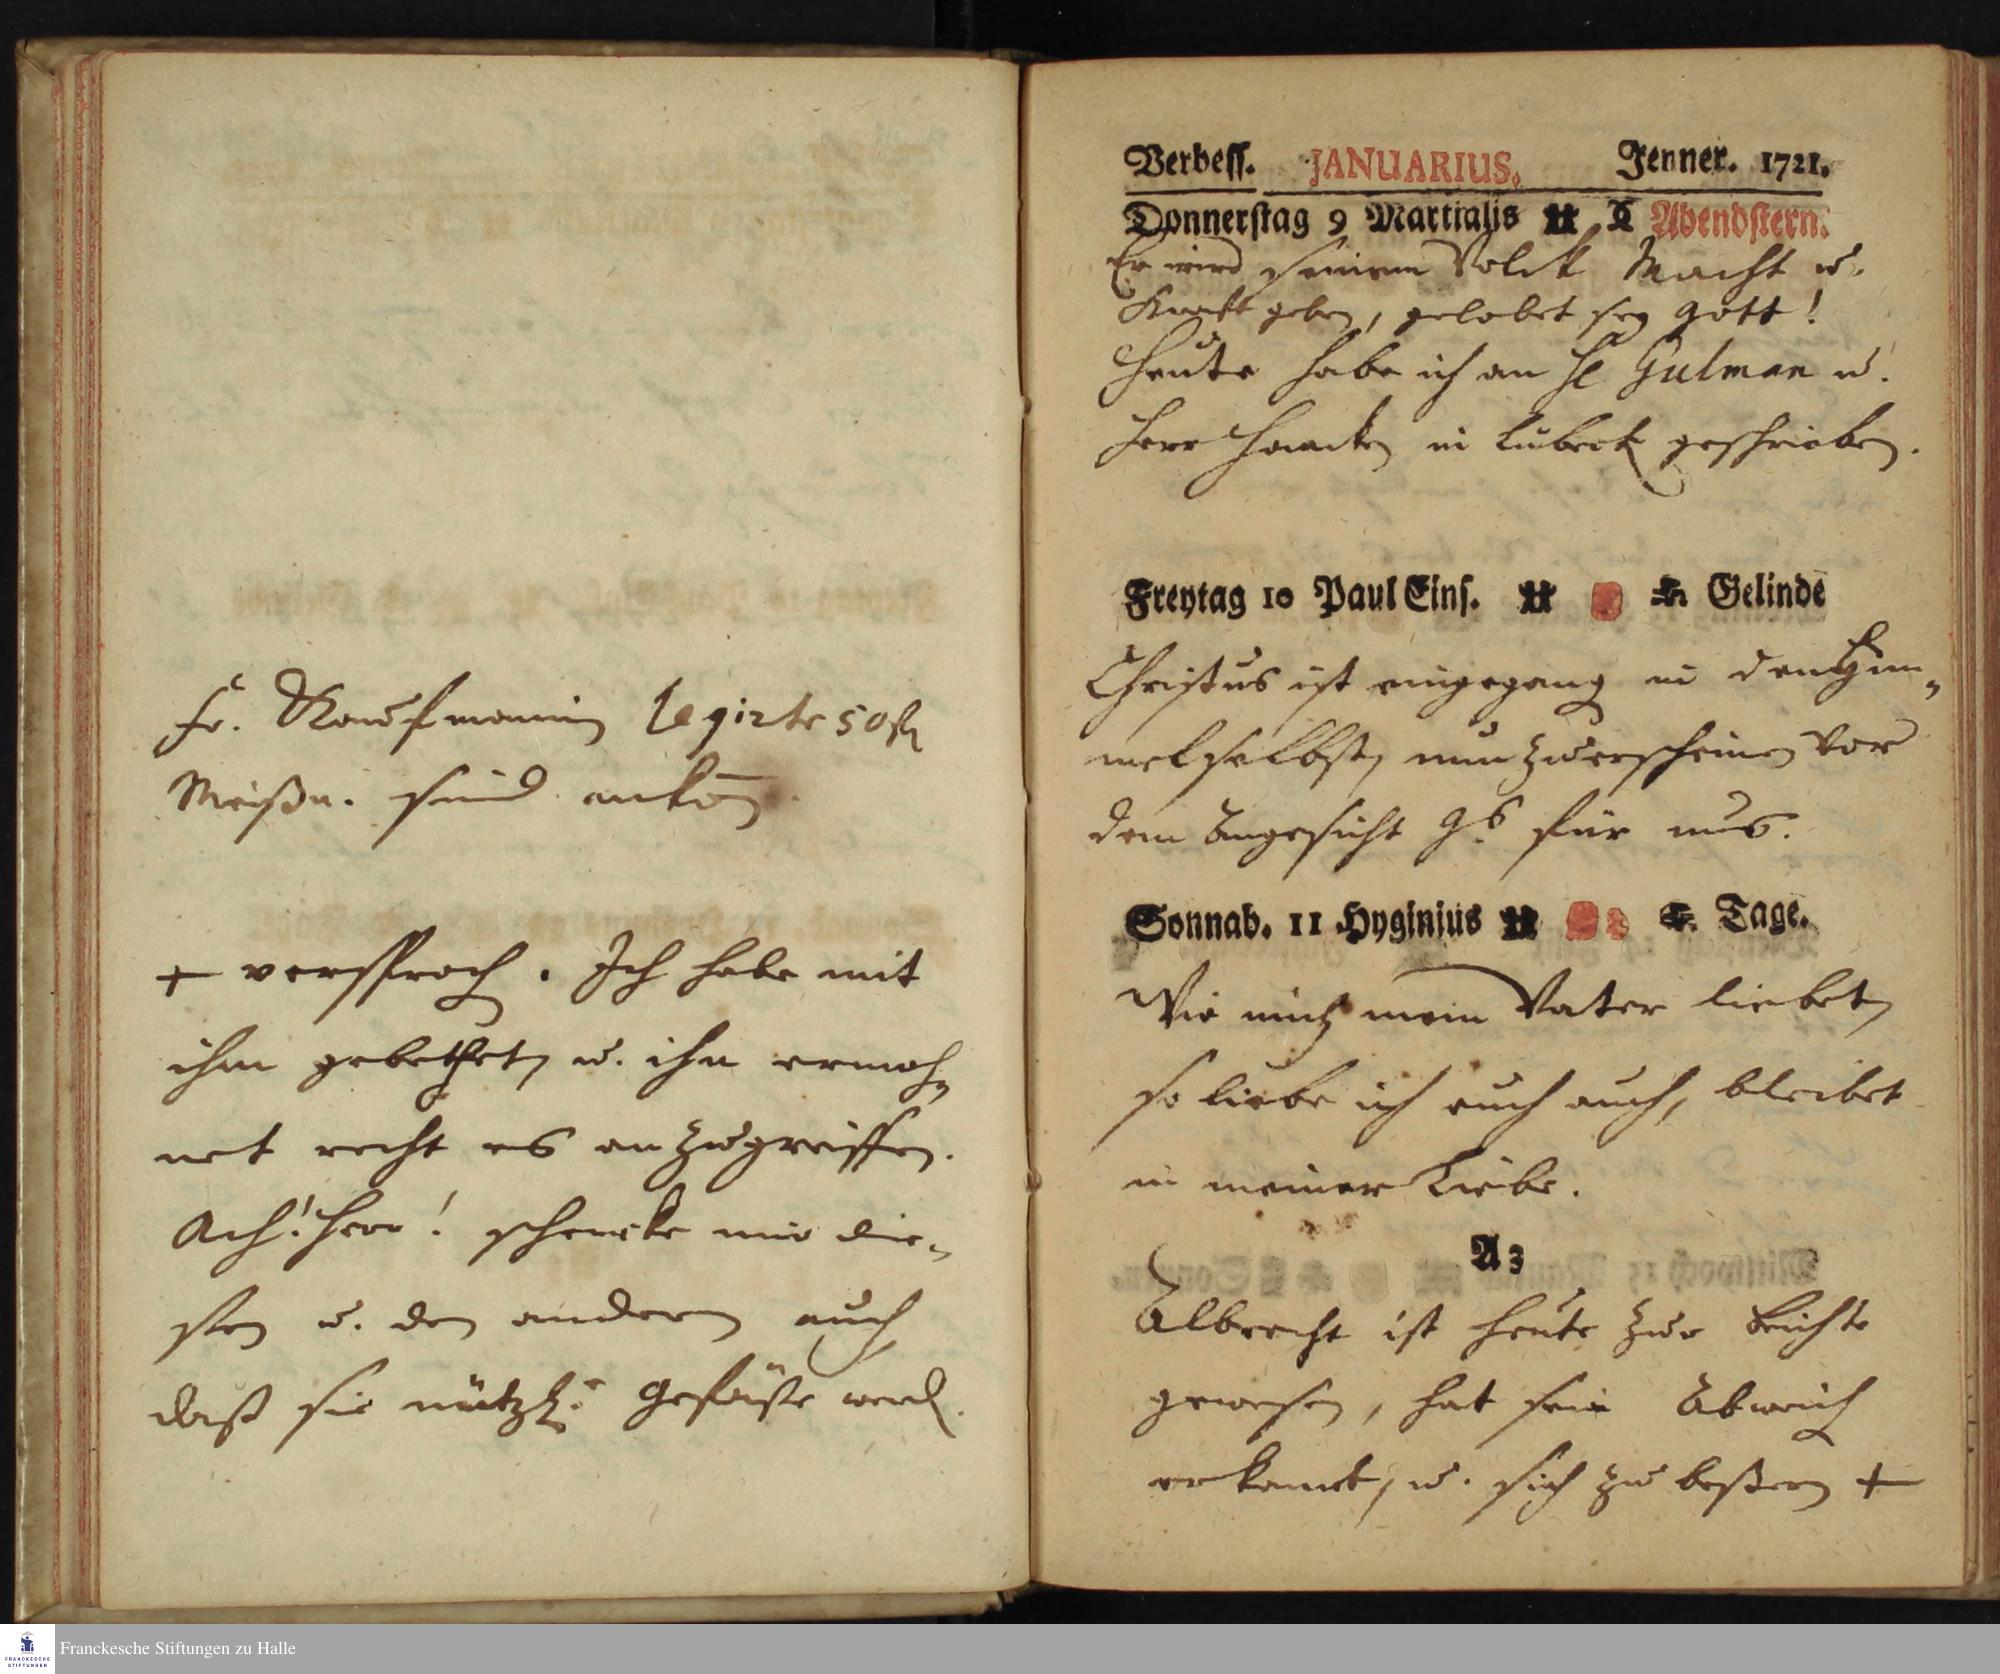 Fr. Kaufmannin legirte 50 fl
Meißn. sind ankom̄.
+ versprach. Ich habe mit
ihm gebethet, u. ihn ermah-
net recht es anzugreiffen.
Ach! Herr! schencke mir die-
sen u. den andern auch
daß sie nützl. Gefäße werd.
Verbess. JANUARIUS. Jenner. 1721.
Donnerstag 9 Martialis Abendstern.
Er wird seinem Volck Macht u.
Krafft geben, gelobet sey Gott!
Heute habe ich an H Gulman u.
Herr Haacken in Lübeck geschrieben.
Freytag 10 Paul Eins. Gelinde
Christus ist eingegang in den Him-
mel selbst, nun zu erscheinen vor
dem Angesicht Gs für uns.
Sonnab. 11 Hyginius Tage.
Wie mich mein Vater liebet,
so liebe ich euch auch, bleibet
in meiner Liebe.
A 3
Albrecht ist heute zur Beichte
gewesen, hat sein Abweich
erkannt, u. sich zu beßern +
Franckesche Stiftungen zu Halle
FRANCKESCHE
STIFTUNGEN